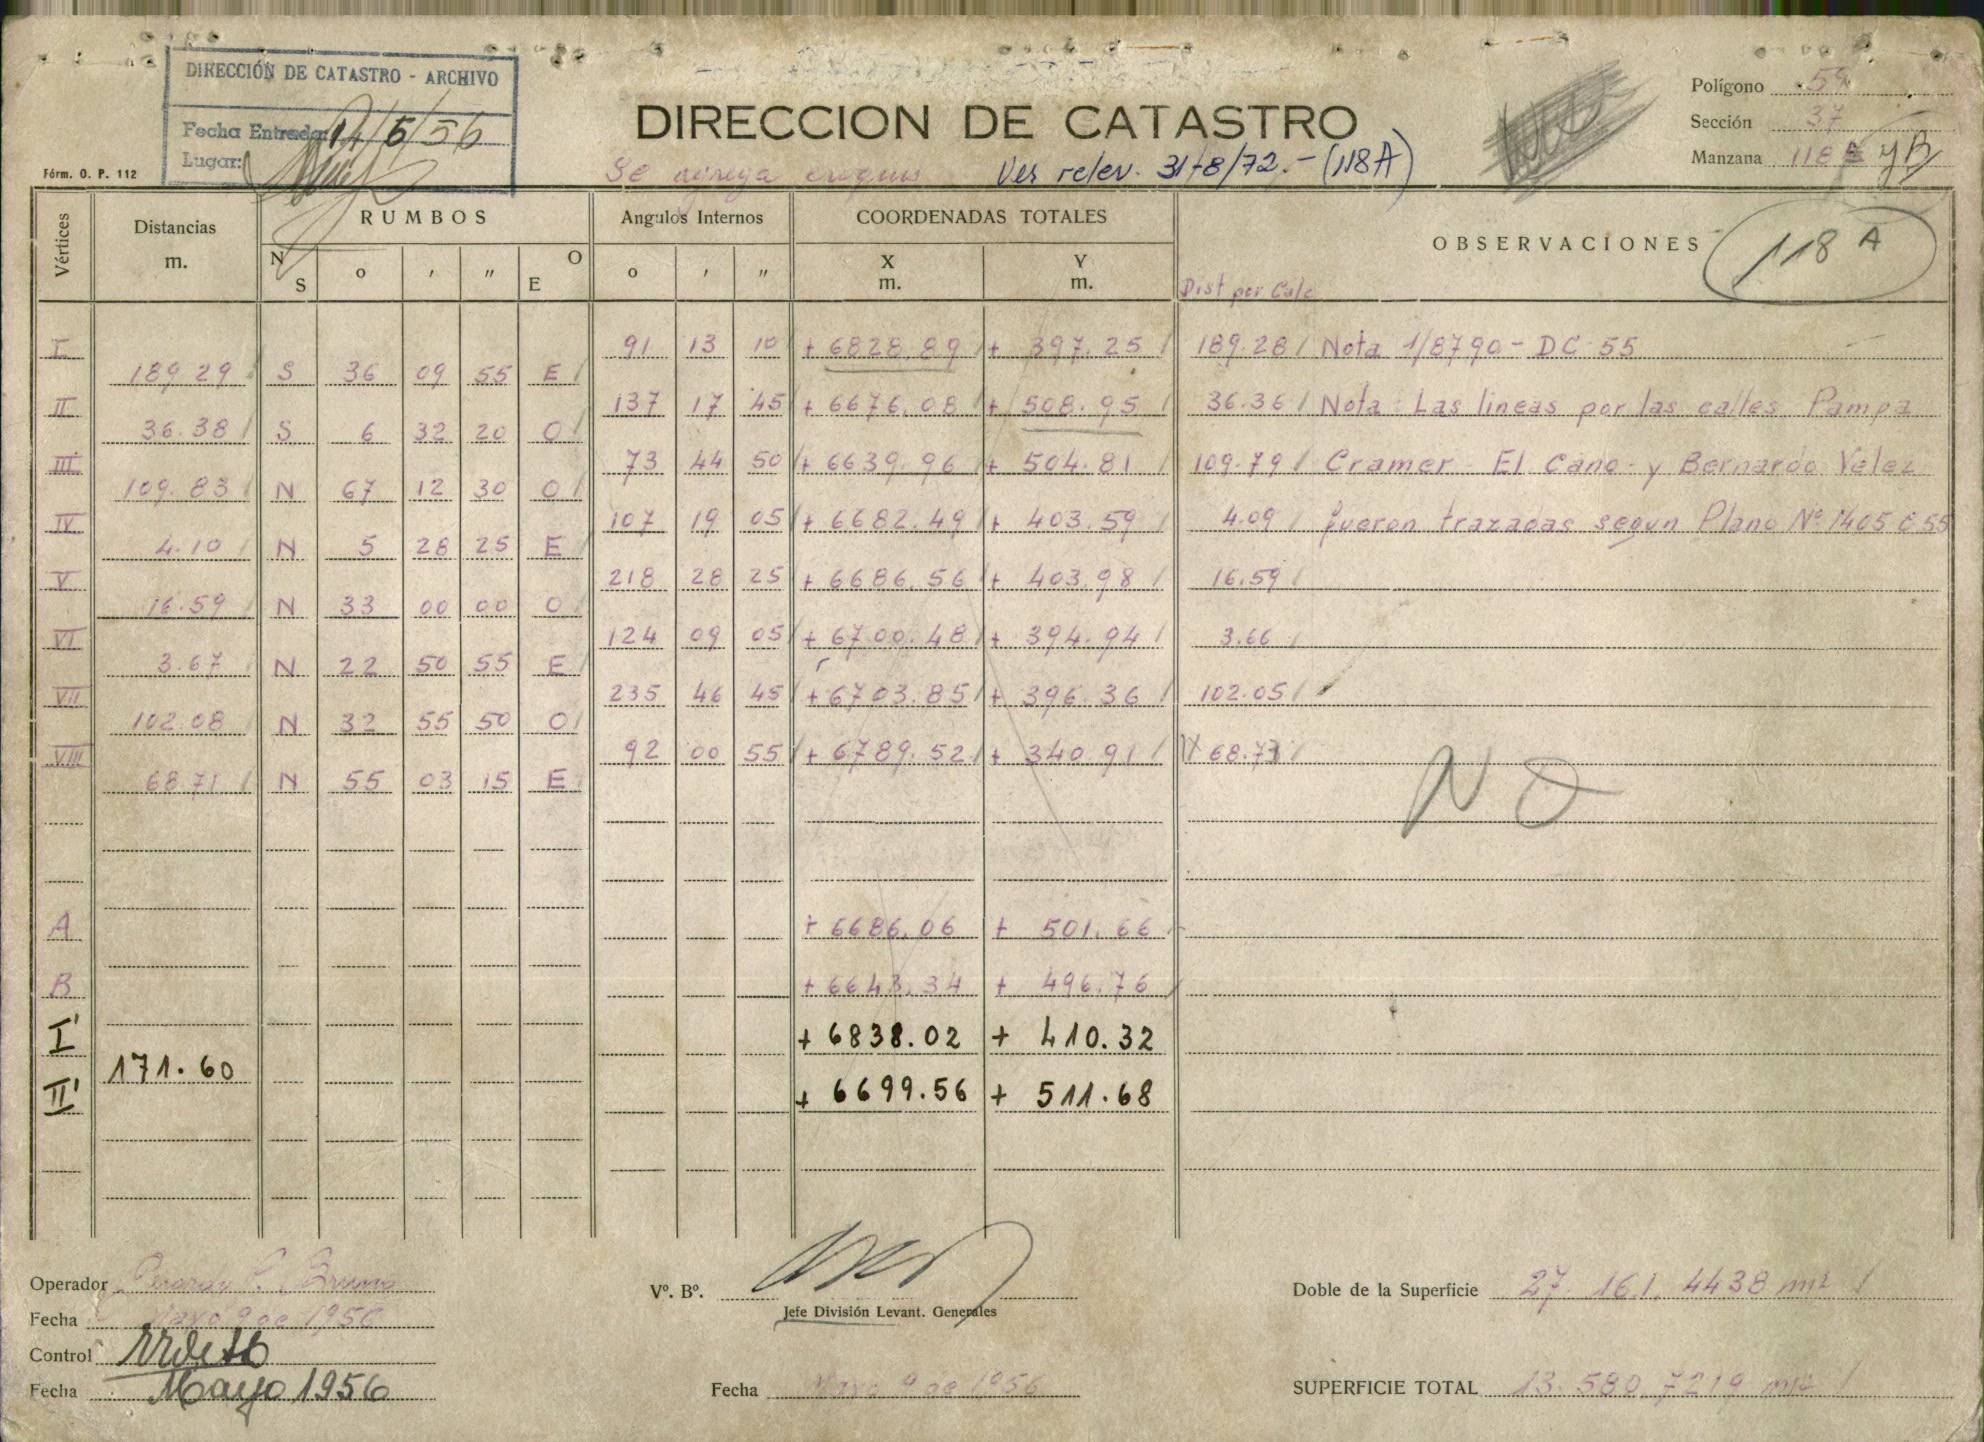 DIRECCIÓN DE CATASTRO - ARCHIVO
Fecha Entrada: 14/5/56
Lugar:
Fórm. O. P. 112
DIRECCION DE CATASTRO
Se agrega croquis Ver relev. 31-8/72.- (118A)
Polígono 59
Sección 37
Manzana 118 y B
Vértices Distancias m. RUMBOS Angulos Internos COORDENADAS TOTALES OBSERVACIONES 118 A
N S o ' " O E o ' " X m. Y m. Dist por Calc
I 91 13 10 + 6828.89 + 397.25 189.28 Nota 1/8790 - DC-55
189.29 S 36 09 55 E
II 137 17 45 + 6676.08 + 508.95 36.36 Nota: Las lineas por las calles Pampa
36.38 S 6 32 20 O
III 73 44 50 + 6639.96 + 504.81 109.79 Cramer - El Cano - y Bernardo Velez
109.83 N 67 12 30 O
IV 107 19 05 + 6682.49 + 403.59 4.09 fueron trazadas segun Plano Nº 1405 C 55
4.10 N 5 28 25 E
V 218 28 25 + 6686.56 + 403.98 16.59
16.59 N 33 00 00 O
VI 124 09 05 + 6700.48 + 394.94 3.66
3.67 N 22 50 55 E
VII 235 46 45 + 6703.85 + 396.36 102.05
102.08 N 32 55 50 O
VIII 92 00 55 + 6789.52 + 340.91 68.73
68.71 N 55 03 15 E
NO
A + 6686.06 + 501.66
B + 6643.34 + 496.76
I' + 6838.02 + 410.32
171.60
II' + 6699.56 + 511.68
Operador Bruno
Fecha Mayo 9 de 1956
Control
Fecha Mayo 1956
Vº. Bº.
Jefe División Levant. Generales
Fecha Mayo 9 de 1956
Doble de la Superficie 27.161.4438 m2
SUPERFICIE TOTAL 13.580.7219 m2